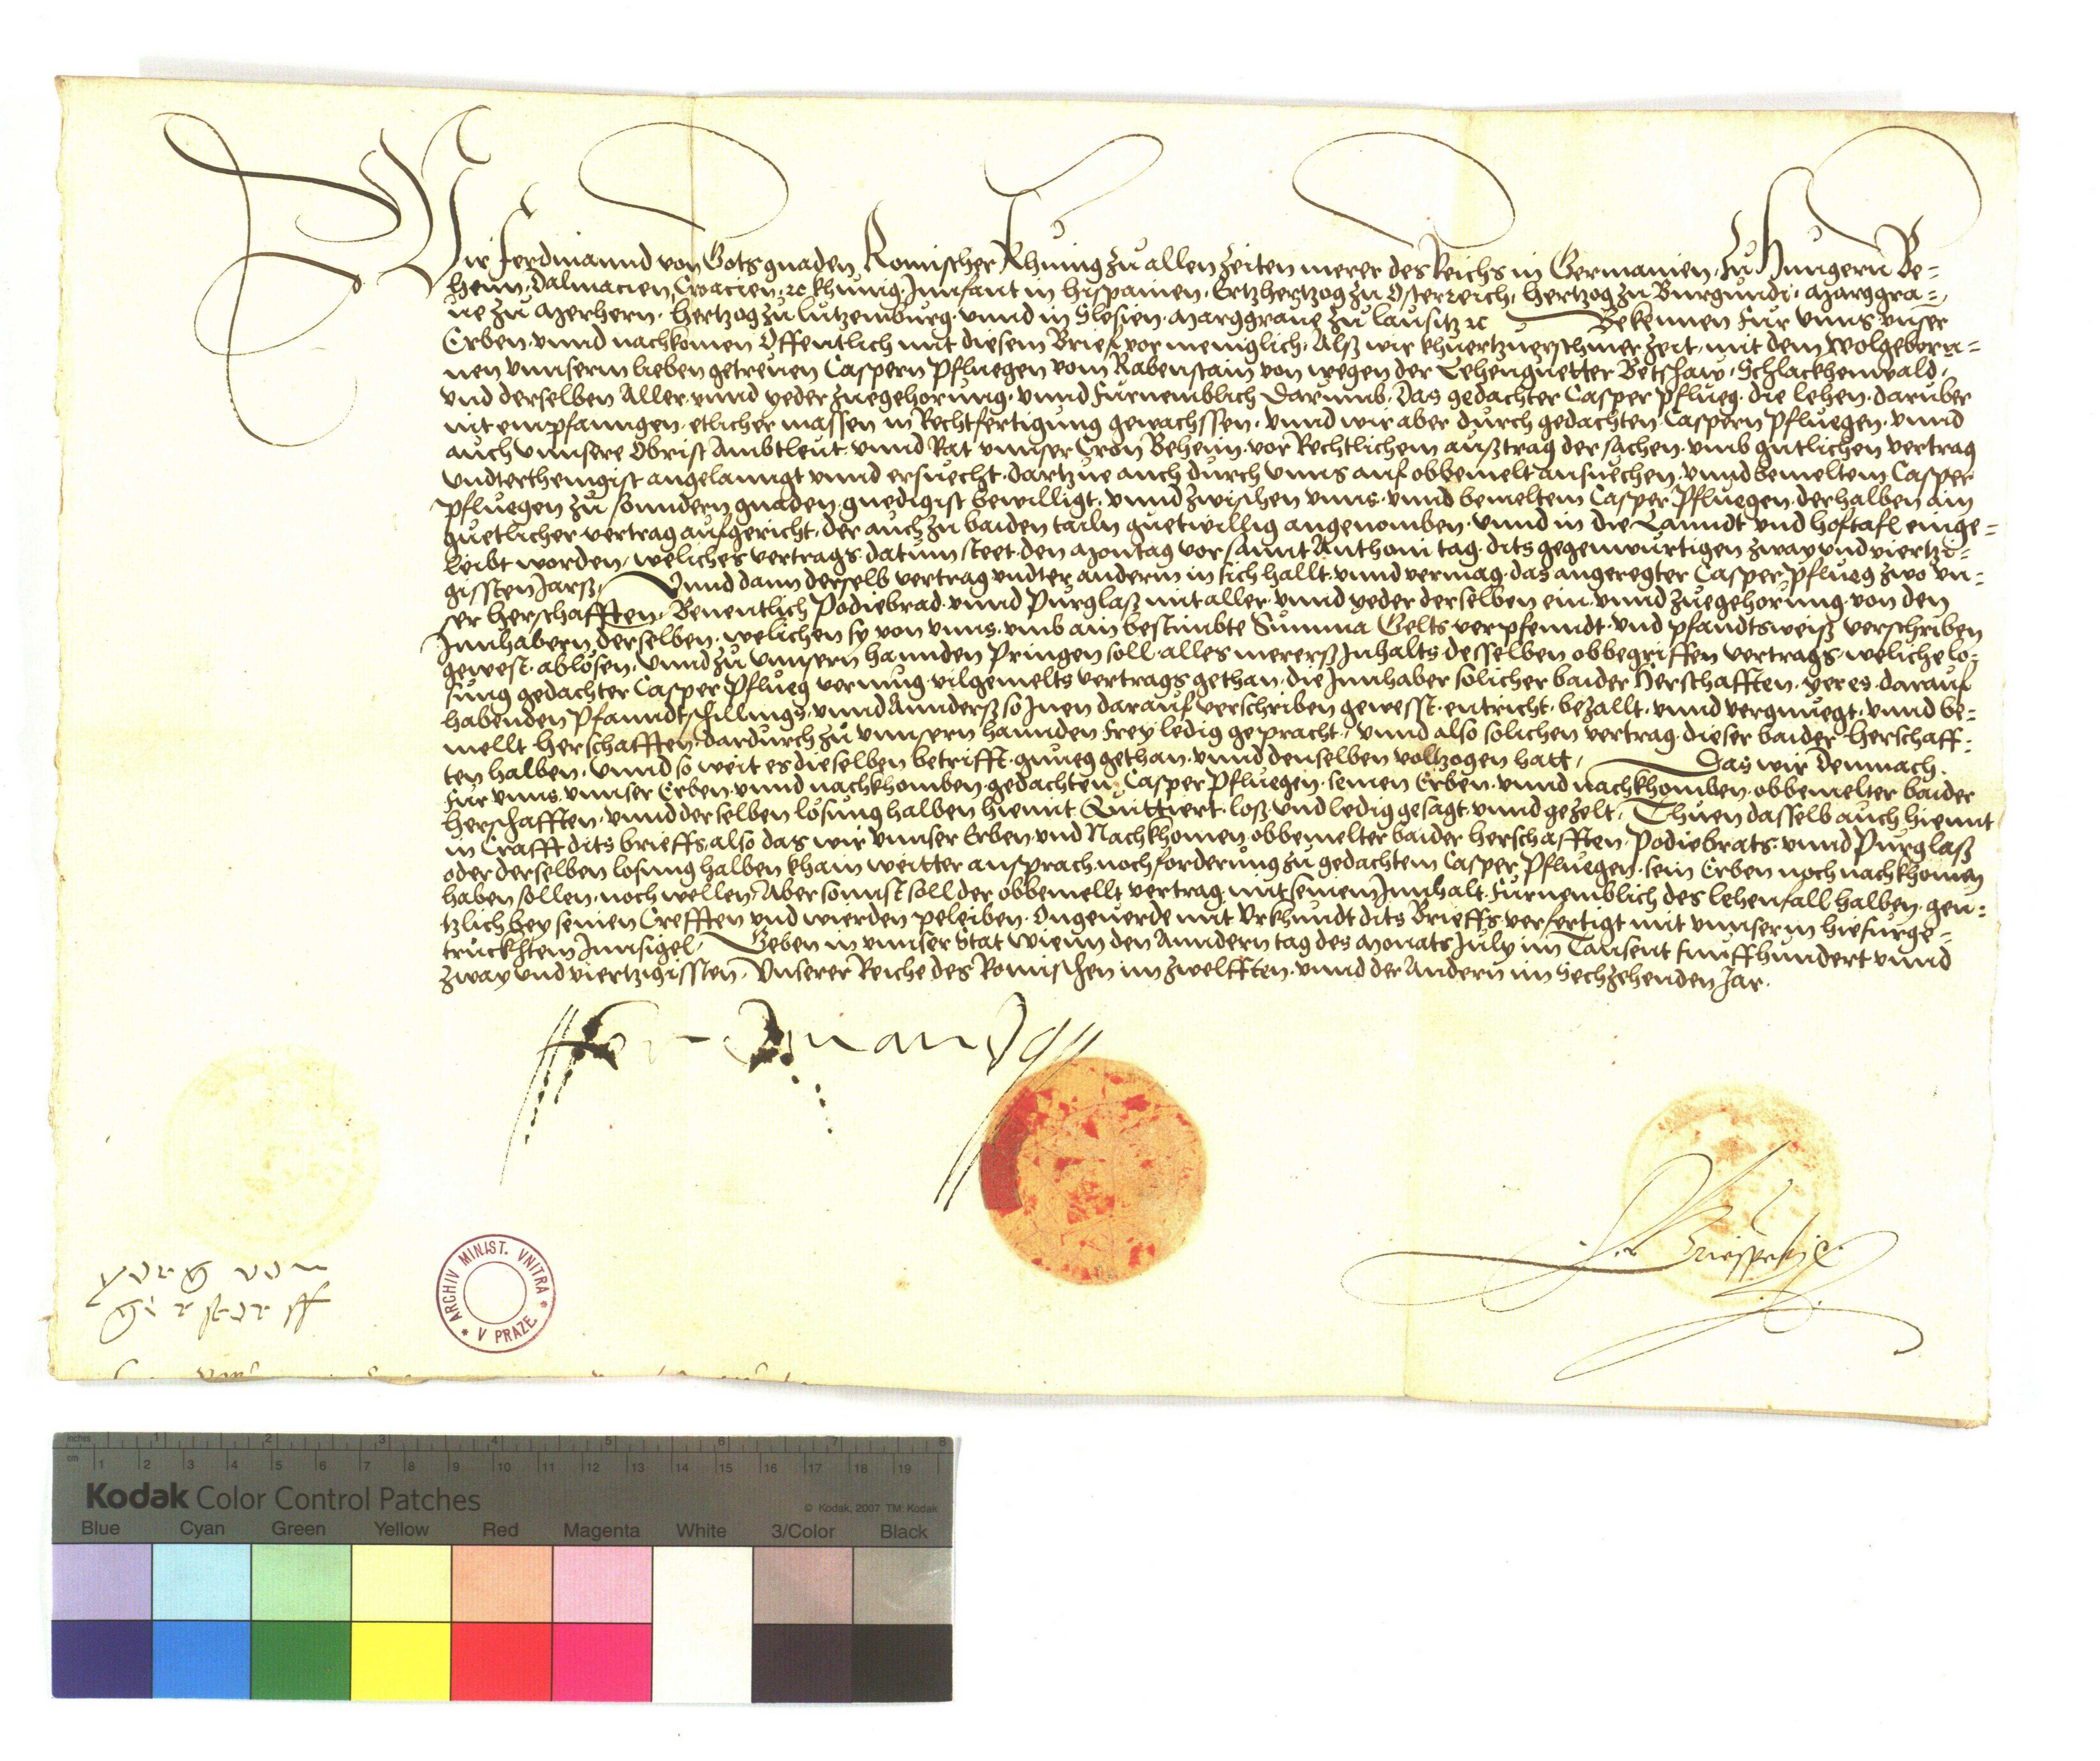 Wir Ferdinannd von Gots gnaden Romischer Khunig zu allen Zeiten merer des Reichs in Germanien, zu Hungern Be=
heim, Dalmacien Croacien, ꝛc khunig, Innfant in Hispanien, Ertzhertzog zu Osterreich, Hertzog zu Burgundi, Marggra=
ue zu Merhern, Hertzog zu Lutzemburg, vnnd in Slesien, Marggraue zu Lausitz ꝛc Bekennen fur vnns vnser
Erben vnnd nachkomen Offentlich mit diesem Brief vor meniglich, Alß wir khuertzuerschiner zeit, mit dem Wolgebor=
nen vnnserm lieben getreuen Caspern Pfluegen vom Rabenstain von wegen der Lehenguetter Betschaw, Schlackhenwald,
vnd derselben Aller vnnd yeder zuegehorung, vnnd furnemblich darumb, das gedachter Casper Pflueg, die lehen, daruber
nit empfanngen, etlicher massen in Rechtfertigung gewachssen, vnnd wir aber durch gedachten Caspern Pfluegen, vnnd
auch vnnsere Obrist Ambtleut vnnd Rat vnnser Cron Beheim, vor Rechtlichem außtrag der sachen, vmb gutlichen vertrag
vndterthenigist angelanngt vnnd ersuecht, dartzue auch durch vnns auf obbemelt ansuechen, vnnd bemeltem Casper
Pfluegen zu sonndern gnaden, gnedigist bewilligt, vnnd zwischen vnns, vnnd bemeltem Casper Pfluegen, derhalben ain
guetlicher vertrag aufgericht, der auch zu baiden tailn guetwillig angenomben, vnnd in die Lanndt vnd hoftafl einge=
leibt worden, weliches vertrags datum steet, den Montag vor sannt Anthoni tag, dits gegenwurtigen zway vnd viertzi=
gissten Jarß, Vnnd dann derselb vertrag vndter anderm in sich hallt, vnnd vermag, das angeregter Casper Pflueg zwo vn=
ser herschafften, Benentlich Podiebrad vnnd Purglaß mit aller vnnd yeder derselben ein vnnd zuegehorung, von den
Innhabern derselben, welichen sy von vnns, vmb ain bestimbte Summa Gelts verpfenndt, vnd pfandtsweiß verschriben
gewest, ablosen, vnnd zu vnnsern hannden Pringen soll, alles mererß Inhalts, desselben obbegriffen vertrags, weliche lo=
sung gedachter Casper Pflueg vermug, vilgemelts vertrags gethan, die Innhaber solicher baider herschafften, yeres, darauf
habenden Pfanndtschillings, vnnd Annderß so Inen darauf verschriben gewesst, entricht, bezallt, vnnd vergnuegt, vnnd be=
mellt herschafften, dardurch zu vnnsern hannden frey ledig gepracht, vnnd also solichen vertrag, dieser baider herschaff=
ten halben, vnnd so weit es dieselben betrifft, gnueg gethan, vnnd denselben voltzogen hatt, Das wir demnach,
fur vnns, vnnser Erben vnnd nachkhomben, gedachten Casper Pfluegen, seinen Erben, vnnd nachkhomben, obbemelter baider
herschafften, vnnd derselben losung halben hiemit Quittiert, loß vnd ledig gesagt vnnd gezelt, Thuen dasselb auch hiemit
in Crafft dits brieffs, also das wir vnnser Erben vnd Nachkhomen, obbemelter baider herschafften, Podiebrats vnnd Purglaß
oder derselben losung halben khain weitter ansprach, noch forderung zu gedachtem Casper Pfluegen, sein Erben noch nachkhomen
haben sollen, noch wellen, Aber sonnst soll der obbemellt vertrag, mit seinem Innhalt, furnemblich des lehenfall halben, gen=
tzlich bey seinen Crefften vnd wierden peleiben, Ongeuerde mit Vrkhundt dits Brieffs, verfertigt mit vnnserm hiefurge=
truckhtem Innsigel, Geben in vnnser Stat Wienn den Anndern tag des Monats July im Tausent funffhundert vnnd
zway vnd viertzigissten, Vnserer Reiche des Romischen im zwelfften, vnnd der Andern im Sechzehenden Jar.
Ferdinand
yorg von
gerstorff
ARCHIV MINIST. VNITRA
V PRAZE
inches 1 2 3 4 5 6 7 8
cm 1 2 3 4 5 6 7 8 9 10 11 12 13 14 15 16 17 18 19
Kodak Color Control Patches © Kodak, 2007 TM: Kodak
Blue Cyan Green Yellow Red Magenta White 3/Color Black